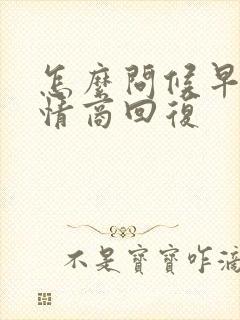 怎麼問候早
情商回復
不是寶寶咋滴